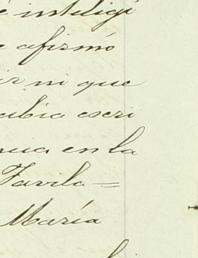 é intiligi
e afirmó
ir ni que
cibio escri
nua en la
Favila =
María